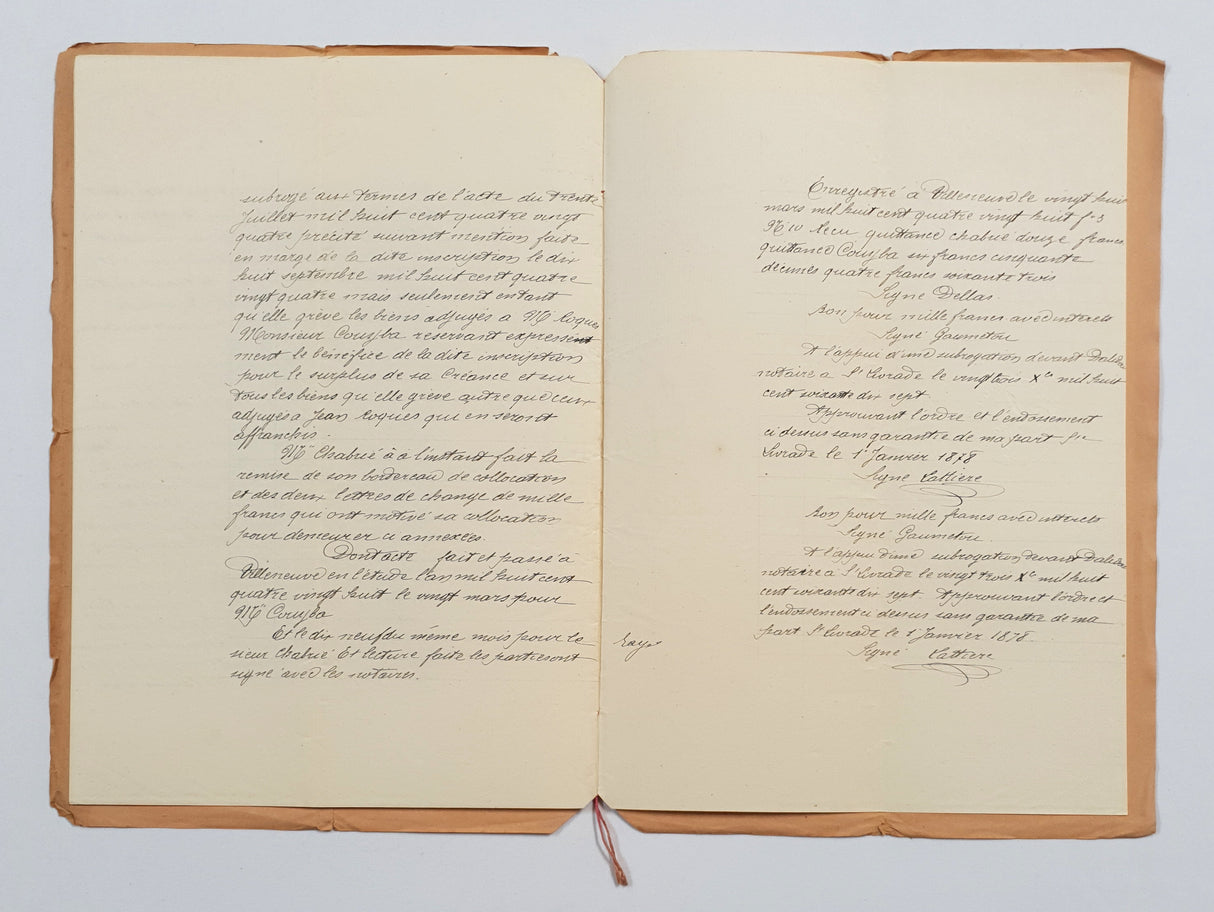 subrogé aux termes de l'acte du trente
Juillet mil huit cent quatre vingt
quatre précité suivant mention faite
en marge de la dite inscription le dix
huit septembre mil huit cent quatre
vingt quatre mais seulement en tant
qu'elle grève les biens adjugés a Mr Roques
Monsieur Couyba réservant expressém
ment le bénéfice de la dite inscription
pour le surplus de sa Créance et sur
tous les biens qu'elle grève autre que ceux
adjugés a Jean Roques qui en seront
affranchis.
Mr Chabrié à à l'instant fait la
remise de son bordereau de collocation
et des deux lettres de change de mille
francs qui ont motivé sa collocation
pour demeurer ci annexées.
Dont acte fait et passé à
Villeneuve en l'étude l'an mil huit cent
quatre vingt huit le vingt mars pour
Mr Couyba
Et le dix neuf du même mois pour le
sieur Chabrié Et lecture faite les parties ont
signé avec les notaires.
Enregistré à Villeneuve le vingt huit
mars mil huit cent quatre vingt huit fo 3
Reçu quittance Chabrié douze francs
quittance Couyba six francs cinquante
décimes quatre francs soixante trois
Signé Dellas.
Bon pour mille francs avec intérêts
Signé Gaumetou
A l'appui d'une subrogation devant
notaire a Ste Livrade le vingt trois Xbre mil huit
cent soixante dix sept.
Approuvant l'ordre et l'endossement
ci dessus sans garantie de ma part Ste
Livrade le 1er Janvier 1878
Signé Lattiere
Bon pour mille francs avec intérêts
Signé Gaumetou.
A l'appui d'une subrogation devant
notaire à Ste Livrade le vingt trois Xbre mil huit
cent soixante dix sept. Approuvant l'ordre et
l'endossement ci dessus sans garantie de ma
part Ste Livrade le 1 Janvier 1878.
Signé Lattiere